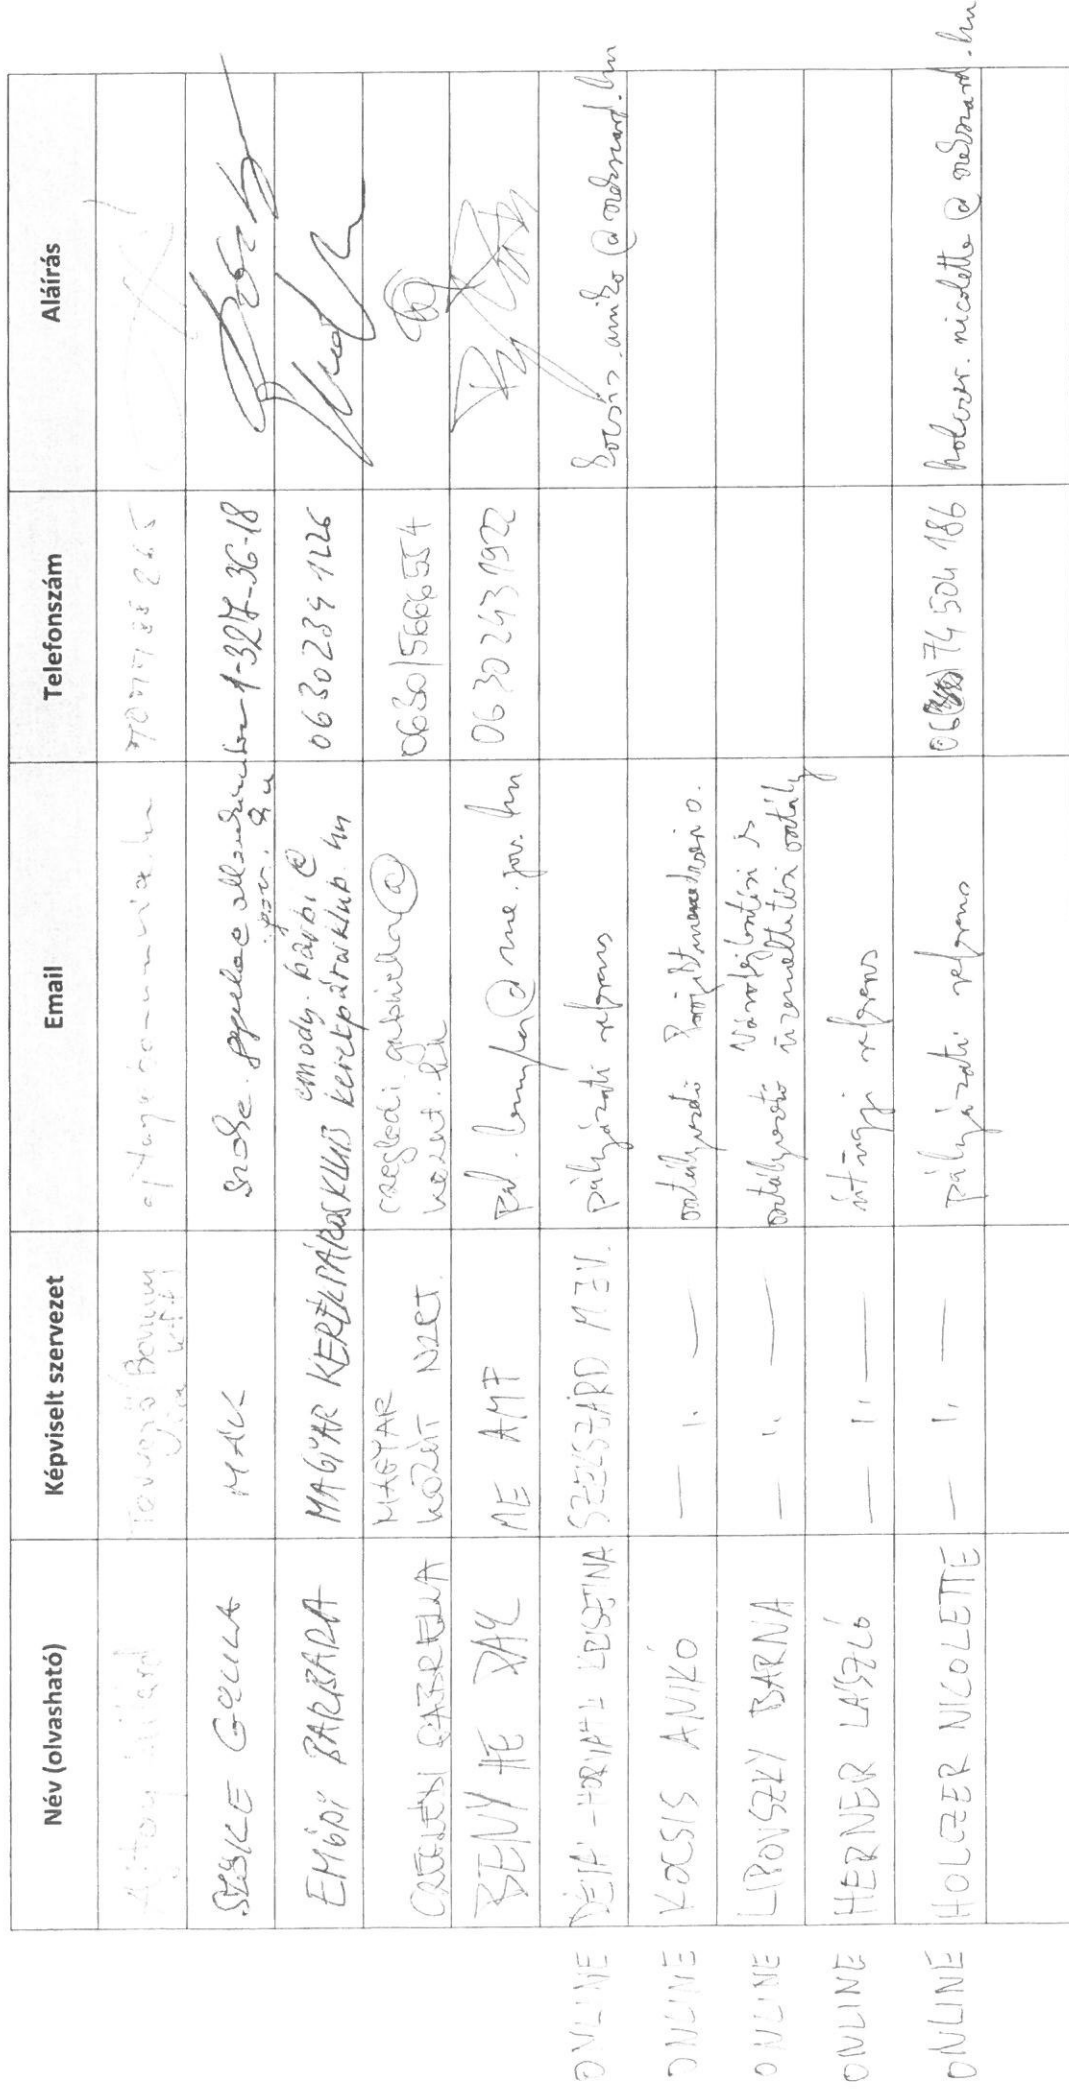 Név (olvasható) Képviselt szervezet Email Telefonszám Aláírás
SZŐKE GYULA MÁK 1-327-36-18
EMŐDY BARBARA MAGYAR KERÉKPÁROSKLUB emody.barbi@
kerekparosklub.hu 0630234 1226
GABRIELLA MAGYAR
KÖZÚT NZRT. czegledi.gabriella@
kozut.hu 0630/5666554
BENYHE PÁL ME AMF pal.benyhe@me.gov.hu 06302431922
ONLINE KRISZTINA SZEKSZÁRD MJV. pályázati referens kocsis.aniko@szekszard.hu
ONLINE KOCSIS ANIKÓ — 1, — osztályvezető Projektmenedzseri o.
ONLINE LIPOVSZKY BARNA — 1, — osztályvezető Városfejlesztési és
üzemeltetési osztály
ONLINE HERNER LÁSZLÓ — 1, — útügyi referens
ONLINE HOLCZER NICOLETTE — 1, — pályázati referens 74 504 186 holczer.nicolette@szekszard.hu